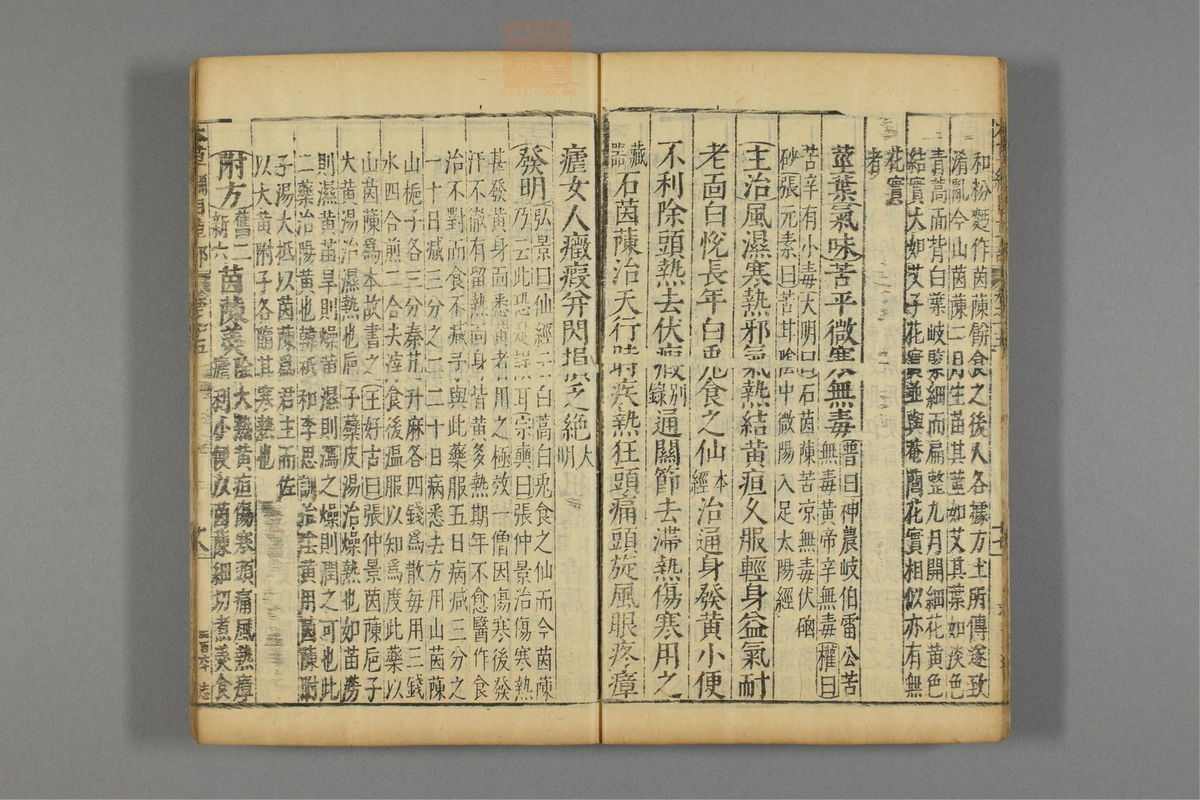 和粉麪作茵蔯餅食之後人各據方土所傳遂致
淆亂今山茵蔯二月生苗其莖如艾其葉如淡色
青蒿而背白葉岐緊細而扁整九月開細花黃色
結實大如艾子花實並與菴䕡花實相似亦有無
花實
者
莖葉氣味苦平微寒無毒普曰神農岐伯雷公苦
無毒黃帝辛無毒權曰
苦辛有小毒大明曰石茵蔯苦凉無毒伏硇
砂張元素曰苦甘陰中微陽入足太陽經
主治風濕寒熱邪氣熱結黃疸久服輕身益氣耐
老面白悅長年白兎食之仙本經治通身發黃小便
不利除頭熱去伏瘕別錄通關節去滯熱傷寒用之
藏器石茵蔯治天行時疾熱狂頭痛頭旋風眼疼瘴
瘧女人癥瘕并閃損乏絕大明
發明弘景曰仙經云白蒿白兎食之仙而今茵蔯
乃云此恐是誤耳宗奭曰張仲景治傷寒熱
甚發黃身面悉黃者用之極效一僧因傷寒後發
汗不徹有留熱面身皆黃多熱期年不愈醫作食
治不對而食不減予與此藥服五日病減三分之
一十日減三分之二二十日病悉去方用山茵蔯
山梔子各三分秦艽升麻各四錢爲散每用三錢
水四合煎二合去滓食後溫服以知爲度此藥以
山茵蔯爲本故書之王好古曰張仲景茵蔯梔子
大黃湯治濕熱也梔子蘗皮湯治燥熱也如苗澇
則濕黃苗旱則燥苗濕則瀉之燥則潤之可也此
二藥治陽黃也韓祗和李思訓治陰黃用茵蔯附
子湯大抵以茵蔯爲君主而佐
以大黃附子各隨其寒熱也
附方舊二新六茵蔯羹除大熱黃疸傷寒頭痛風熱瘴
瘧利小便以茵蔯細切煮羹食